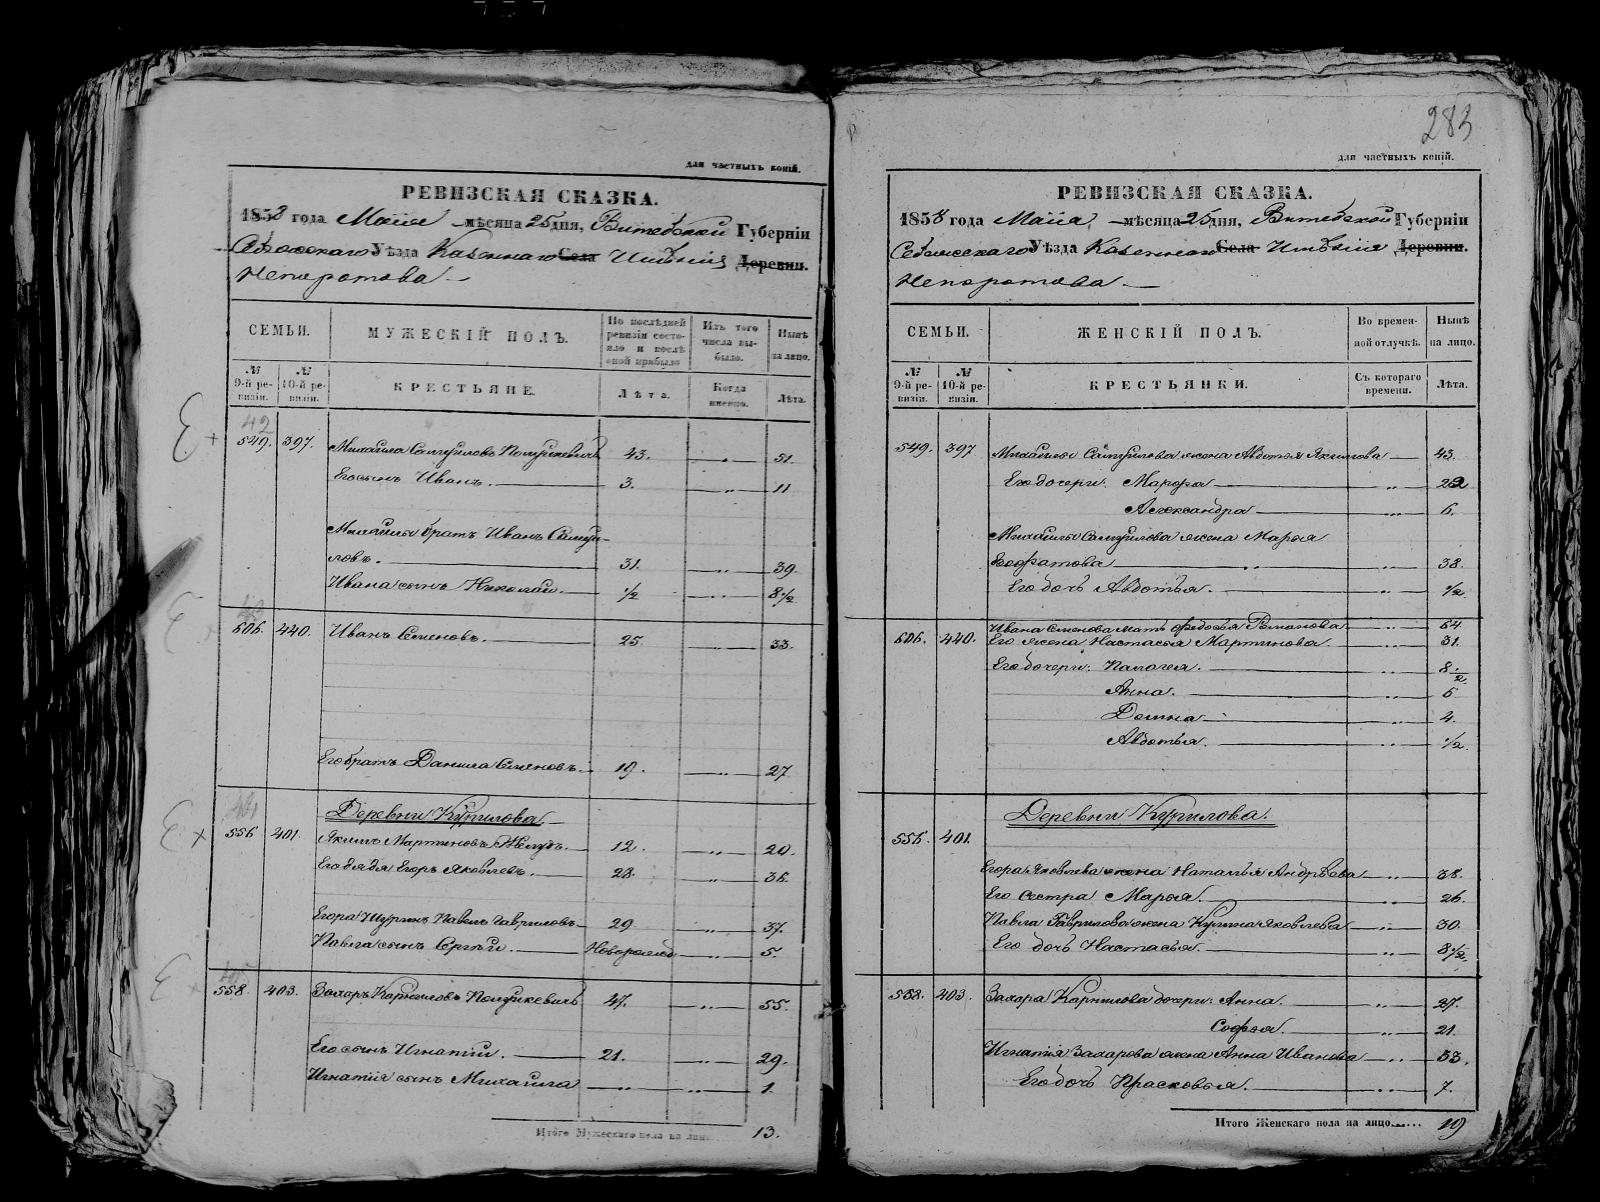 для частныхъ копій.
РЕВИЗСКАЯ СКАЗКА.
1858 года Маія мѣсяца 25 дня, Витебской Губерніи
Себежскаго Уѣзда Казеннаго Села Имѣнія Деревни.
Непоротова
СЕМЬИ.
МУЖЕСКІЙ ПОЛЪ.
По послѣдней ревизіи состояло и послѣ оной прибыло
Изъ того числа выбыло.
Нынѣ на лицо.
№ 9-й ревизіи.
№ 10-й ревизіи.
КРЕСТЬЯНЕ.
Лѣта.
Когда именно.
Лѣта.
42
549. 397. Михайла Самуиловъ 43. " 51.
Его сынъ Иванъ. 3. " 11
Михайлы братъ Иванъ Самуи-
ловъ. 31. " 39.
Ивана сынъ Николай 1/2 " 8 1/2
606. 440. Иванъ Семеновъ. 25 " 33.
Его братъ Данила Семеновъ 19. " 27
Деревни Курилова
44
556 401. Якимъ Мартиновъ 12. " 20.
Его дядя Егоръ Яковлевъ. 28. " 36.
Егора Шуринъ Павелъ Гавриловъ 29 " 37.
Павла сынъ Сергѣй Новорожд " 5.
558. 403. Захаръ Карниловъ 47. " 55.
Его сынъ Игнатій. 21. " 29.
Игнатія сынъ Михайла " " 1.
Итого Мужескаго пола на лицо 13.
283
для частныхъ копій.
РЕВИЗСКАЯ СКАЗКА.
1858 года Маіа мѣсяца 25 дня, Витебской Губерніи
Себежскаго Уѣзда Казеннаго Села Имѣнія Деревни.
Непоротова
СЕМЬИ.
ЖЕНСКІЙ ПОЛЪ.
Во временной отлучкѣ.
Нынѣ на лицо.
№ 9-й ревизіи.
№ 10-й ревизіи.
КРЕСТЬЯНКИ.
Съ котораго времени.
Лѣта.
549. 397 Михайлы Самуилова жена Авдотья Якимова 43.
Его дочери: Марфа " 22
Александра " 6.
Михайлы Самуилова жена Марья
" 38.
Его дочь Авдотья. " 1/2.
606. 440. Ивана Семенова мать Федосья Романова " 64
Его жена Настасья Мартинова. " 31.
Его дочери: Палагея. " 8 1/2.
Анна. " 6
Домна " 4.
Авдотья. " 1/2.
Деревни Курилова.
556. 401.
Егора Яковлева жена Наталья Андрѣева " 38.
Его сестра Марья. " 26.
Павла Гаврилова жена Яковлева " 30.
Его дочь Настасья. " 8 1/2.
558. 403. Захара Карнилова дочери: Анна. " 27.
Софья. " 21.
Игнатія Захарова жена Анна Иванова " 33.
Его дочь Прасковья. " 7.
Итого Женскаго пола на лицо...... 19